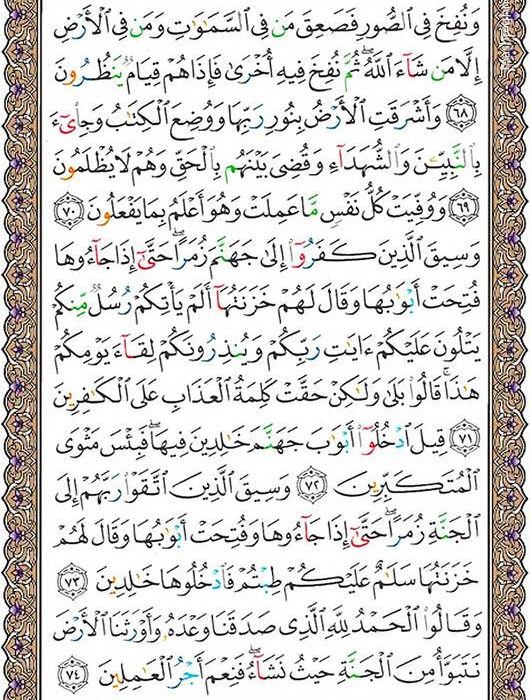 وَنُفِخَ فِي ٱلصُّورِ فَصَعِقَ مَن فِي ٱلسَّمَٰوَٰتِ وَمَن فِي ٱلْأَرْضِ
إِلَّا مَن شَآءَ ٱللَّهُ ۖ ثُمَّ نُفِخَ فِيهِ أُخْرَىٰ فَإِذَا هُمْ قِيَامٌ يَنظُرُونَ
٦٨ وَأَشْرَقَتِ ٱلْأَرْضُ بِنُورِ رَبِّهَا وَوُضِعَ ٱلْكِتَٰبُ وَجِا۟يٓءَ
بِٱلنَّبِيِّـۧنَ وَٱلشُّهَدَآءِ وَقُضِيَ بَيْنَهُم بِٱلْحَقِّ وَهُمْ لَا يُظْلَمُونَ
٦٩ وَوُفِّيَتْ كُلُّ نَفْسٍ مَّا عَمِلَتْ وَهُوَ أَعْلَمُ بِمَا يَفْعَلُونَ ٧٠
وَسِيقَ ٱلَّذِينَ كَفَرُوٓا۟ إِلَىٰ جَهَنَّمَ زُمَرًا ۖ حَتَّىٰٓ إِذَا جَآءُوهَا
فُتِحَتْ أَبْوَٰبُهَا وَقَالَ لَهُمْ خَزَنَتُهَآ أَلَمْ يَأْتِكُمْ رُسُلٌ مِّنكُمْ
يَتْلُونَ عَلَيْكُمْ ءَايَٰتِ رَبِّكُمْ وَيُنذِرُونَكُمْ لِقَآءَ يَوْمِكُمْ
هَٰذَا ۚ قَالُوا۟ بَلَىٰ وَلَٰكِنْ حَقَّتْ كَلِمَةُ ٱلْعَذَابِ عَلَى ٱلْكَٰفِرِينَ
٧١ قِيلَ ٱدْخُلُوٓا۟ أَبْوَٰبَ جَهَنَّمَ خَٰلِدِينَ فِيهَا ۖ فَبِئْسَ مَثْوَى
ٱلْمُتَكَبِّرِينَ ٧٢ وَسِيقَ ٱلَّذِينَ ٱتَّقَوْا۟ رَبَّهُمْ إِلَى
ٱلْجَنَّةِ زُمَرًا ۖ حَتَّىٰٓ إِذَا جَآءُوهَا وَفُتِحَتْ أَبْوَٰبُهَا وَقَالَ لَهُمْ
خَزَنَتُهَا سَلَٰمٌ عَلَيْكُمْ طِبْتُمْ فَٱدْخُلُوهَا خَٰلِدِينَ ٧٣
وَقَالُوا۟ ٱلْحَمْدُ لِلَّهِ ٱلَّذِي صَدَقَنَا وَعْدَهُۥ وَأَوْرَثَنَا ٱلْأَرْضَ
نَتَبَوَّأُ مِنَ ٱلْجَنَّةِ حَيْثُ نَشَآءُ ۖ فَنِعْمَ أَجْرُ ٱلْعَٰمِلِينَ ٧٤